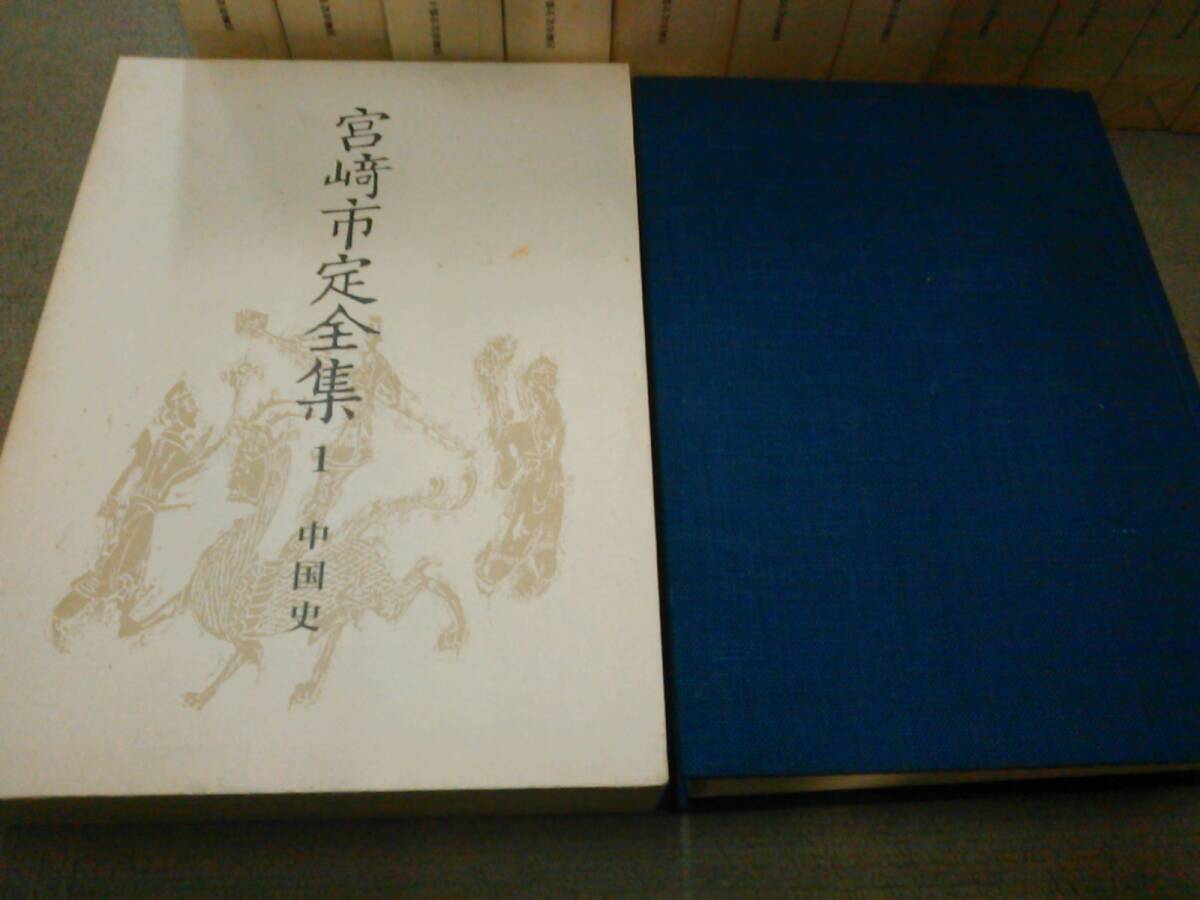 宮﨑市定全集 1 中国史